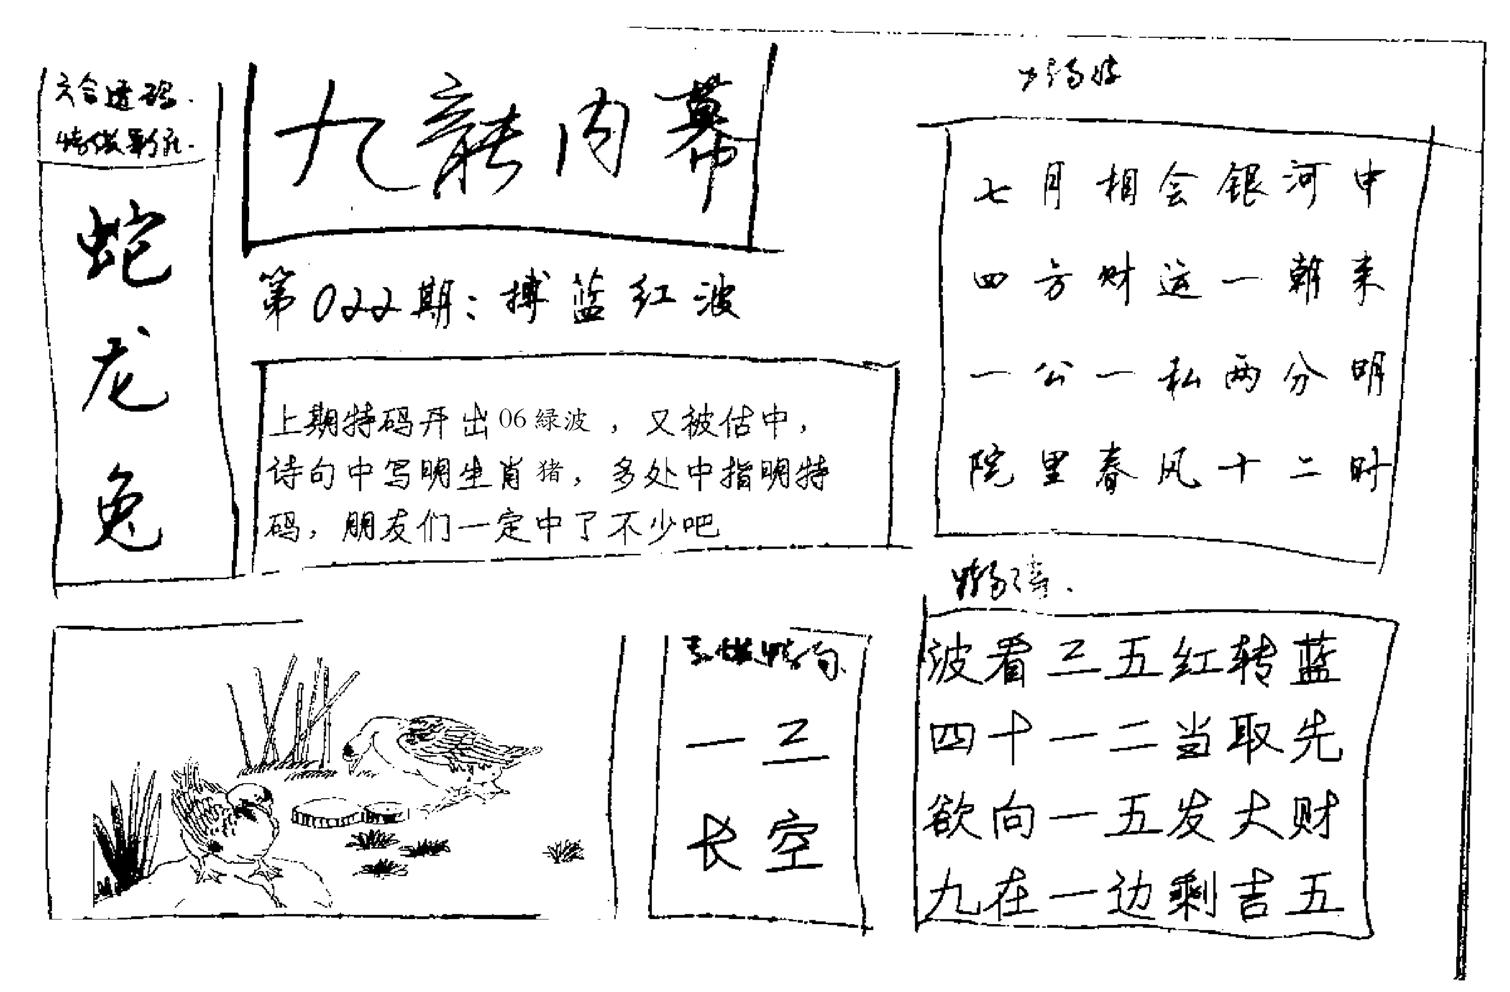 六合透码.
九龍内幕
蛇
龙
兔
第022期：搏蓝红波
上期特码开出06緑波，又被估中，
诗句中写明生肖猪，多处中指明特
码，朋友们一定中了不少吧
七月相会银河中
四方财运一朝来
一公一私两分明
院里春风十二时
一三
长空
波看三五红转蓝
四十一二当取先
欲向一五发大财
九在一边剩吉五